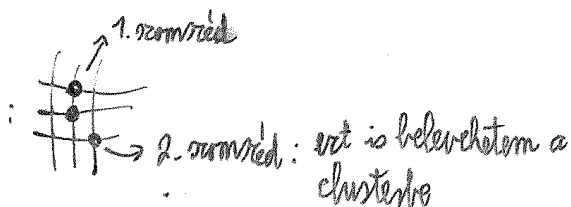 1. szomszéd
2. szomszéd : ezt is belevehetem a
clusterbe